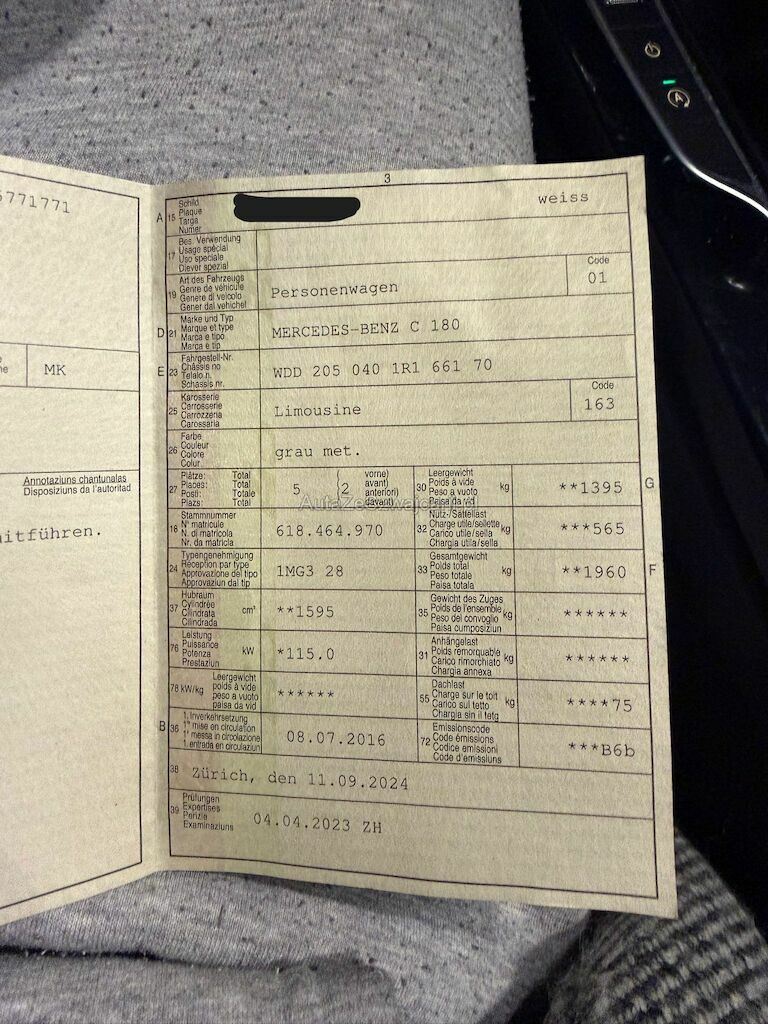 3
5771771
MK
Annotaziuns chantunalas
Disposiziuns da l'autoritad
A 15 Schild
Plaque
Targa
Numer
weiss
17 Bes. Verwendung
Usage spécial
Uso speciale
Diever spezial
19 Art des Fahrzeugs
Genre de véhicule
Genere di veicolo
Gener dal vehichel
Personenwagen
Code
01
D 21 Marke und Typ
Marque et type
Marca e tipo
Marca e tip
MERCEDES-BENZ C 180
E 23 Fahrgestell-Nr.
Châssis no
Telaio n.
Schassis nr.
WDD 205 040 1R1 661 70
25 Karosserie
Carrosserie
Carrozzeria
Carossaria
Limousine
Code
163
26 Farbe
Couleur
Colore
Colur
grau met.
27 Plätze: Total
Places: Total
Posti: Totale
Plazs: Total
5 (2 vorne)
avant)
anteriori)
davant)
30 Leergewicht
Poids à vide
Peso a vuoto
Paisa da vid
kg
**1395
G
18 Stammnummer
N° matricule
N. di matricola
Nr. da matricla
618.464.970
32 Nutz-/Sattellast
Charge utile/sellette
Carico utile/sella
Chargia utila/sella
kg
***565
24 Typengenehmigung
Réception par type
Approvazione del tipo
Approvaziun dal tip
1MG3 28
33 Gesamtgewicht
Poids total
Peso totale
Paisa totala
kg
**1960
F
37 Hubraum
Cylindrée
Cilindrata
Cilindrada
cm³
**1595
35 Gewicht des Zuges
Poids de l'ensemble
Peso del convoglio
Paisa cumposiziun
kg
******
76 Leistung
Puissance
Potenza
Prestaziun
kW
*115.0
31 Anhängelast
Poids remorquable
Carico rimorchiato
Chargia annexa
kg
******
78 kW/kg
Leergewicht
poids à vide
peso a vuoto
paisa da vid
******
55 Dachlast
Charge sur le toit
Carico sul tetto
Chargia sin il tetg
kg
****75
B 36 1. Inverkehrsetzung
1re mise en circulation
1a messa in circolazione
1. entrada en circulaziun
08.07.2016
72 Emissionscode
Code émissions
Codice emissioni
Code d'emissiuns
***B6b
38 Zürich, den 11.09.2024
39 Prüfungen
Expertises
Perizie
Examinaziuns
04.04.2023 ZH